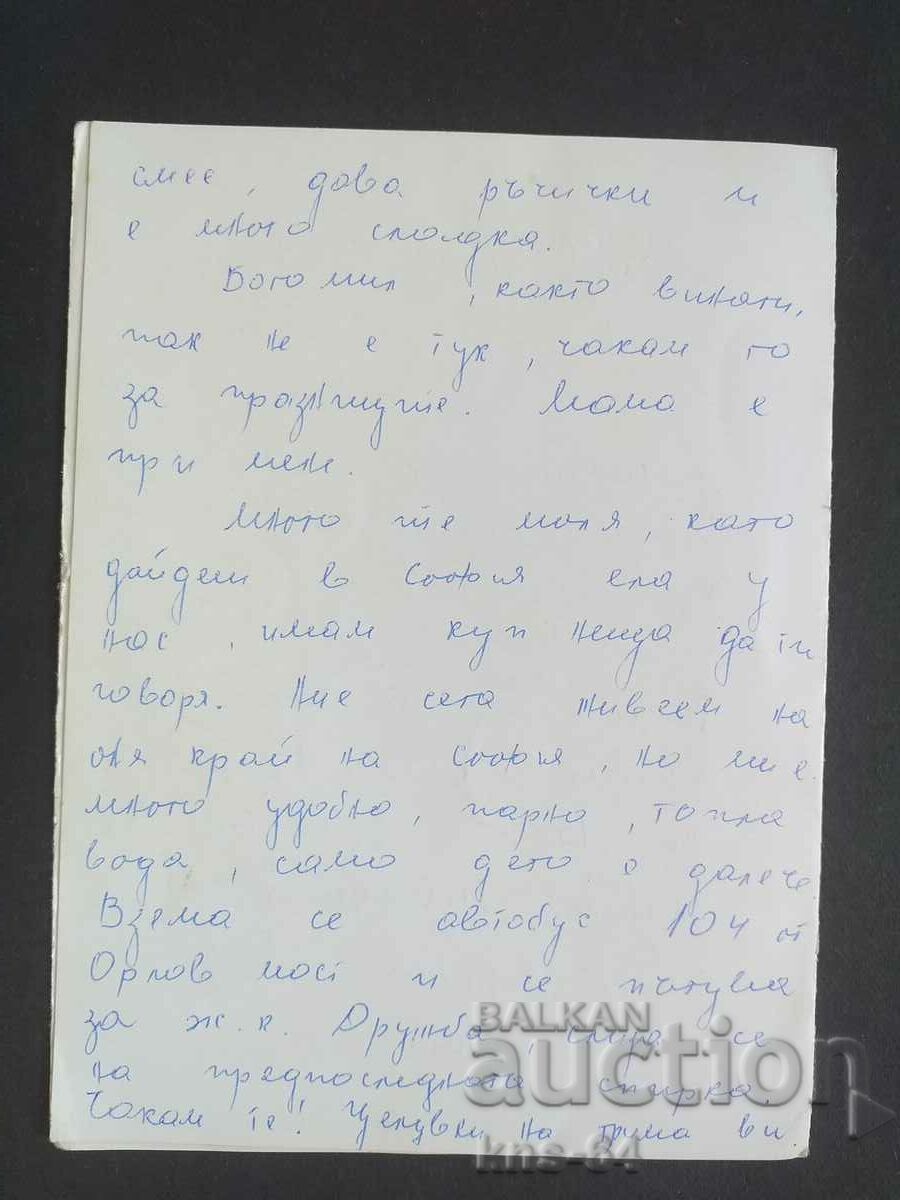 смее, дава ръчички и
е много сладка.
Богомил, както винаги,
пак не е тук, чакам го
за празниците. Мама е
при мен.
Много те моля, като
дойдеш в София ела у
нас, имам куп неща да ти
говоря. Ние сега живеем на
оня край на София, но ми е
много удобно, парно, топла
вода, само дето е далече
Взема се автобус 104 от
Орлов мост и се пътува
за ж.к. Дружба, слиза се
на предпоследната спирка.
Чакам те! Целувки на двама ви
BALKAN
auction
kns-64